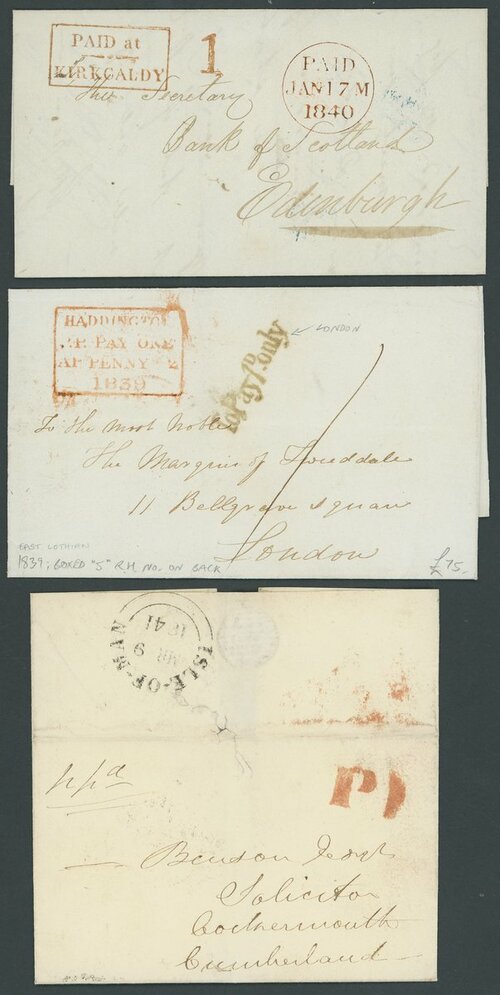 PAID at
KIRKCALDY
1
PAID
JAN 17 M
1840
The Secretary
Bank of Scotland
Edinburgh
HADDINGTON
PAY ONE
PENNY
1839
To Pay 1D. only
LONDON
To the Most Noble
The Marquis of Tweeddale
11 Bellgrave Square
London
EAST LOTHIAN
1839; BOXED "5" R.H. NO. ON BACK
£75.
ISLE-OF-MAN
9
1841
ppd
P1
Benson
Solicitor
Cockermouth
Cumberland